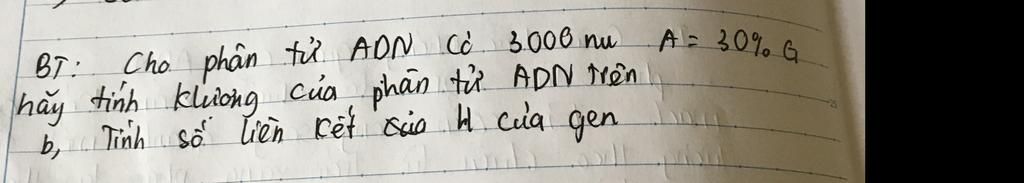 BT: Cho phân tử ADN có 3000 nu A = 30% G
hãy tính klượng của phân tử ADN trên
b, Tính số liên kết của H của gen